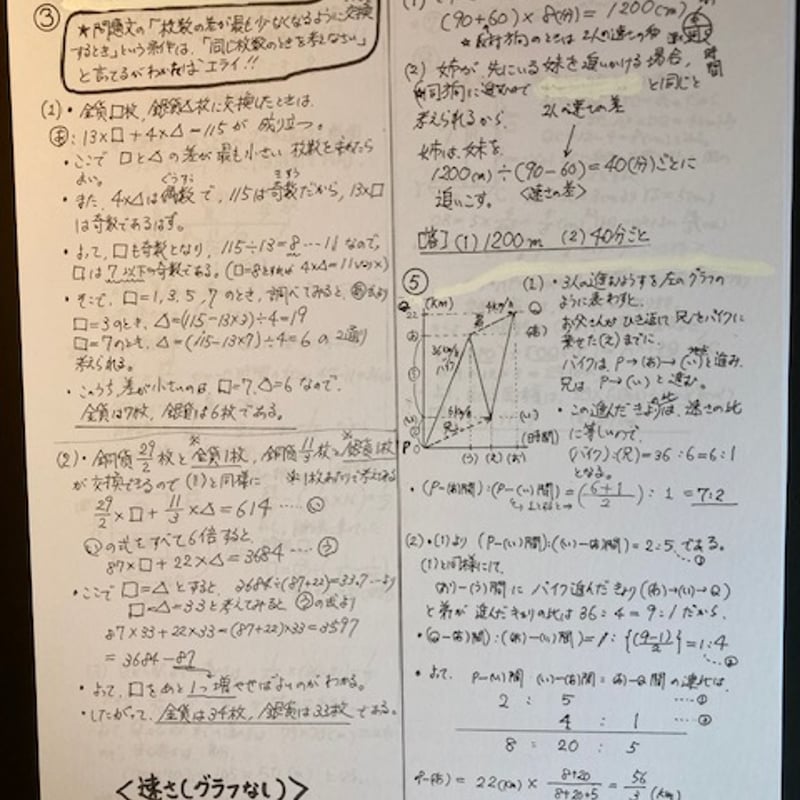 ③
★問題文の「枚数の差が最も少なくなるように交換
するとき」という条件は、「同じ枚数のときを考えなさい」
と言てるがわかればエライ!!
(1)・金貨□枚、銀貨△枚に交換したときは、
あ:13×□+4×△=115が 成り立つ。
・ここで □と△の差が最も小さい 枚数を求めたら
よい。
ぐうすう きすう
・また、4×△は偶数で、115は奇数だから、13×□
は奇数であるはず。
・よって、□も奇数となり、115÷13=8…11なので、
□は7以下の奇数である。(□=8とすれば 4×△=11となり×)
・そこで、□=1、3、5、7のとき、調べてみると、あ式より
□=3のとき、△=(115-13×3)÷4=19
□=7のとき、△=(115-13×7)÷4=6 の2通り
考えられる。
・このうち、差が小さいのは、□=7、△=6なので、
金貨は7枚、銀貨は6枚である。
(2)・銅貨29/2枚と金貨1枚、銅貨11/3枚と銀貨1枚
が交換できるので (1)と同様に ※1枚あたりで考える
29/2×□+11/3×△=614……い
いの式をすべて6倍すると、
87×□+22×△=3684……う
・ここで □=△とすると、3684÷(87+22)=33.7…より
□=△=33と考えてみると、うの式より
87×33+22×33=(87+22)×33=3597
=3684-87
・よって、□をあと1つ増やせばよいのがわかる。
・したがって、金貨は34枚、銀貨は33枚である。
<速さ(グラフなし)>
(90+60)×8(分)=1200(m)
★反対方向のときは2人の速さの和
時間
(2) 姉が、先にいる妹を追いかける場合、
と同じと
考えられるから、 2人の速さの差
姉は、妹を、
1200(m)÷(90-60)=40(分)ごとに
追いこす。 <速さの差>
[答](1)1200m (2)40分ごと
⑤
(km)
22
4km/h
弟
36km/h
バイク
6km/h
兄
P
0
(い)
(う) (え) (お)
(時間)
(1)・3人の進むようすを左のグラフの
ように表わすと、
お父さんがひき返して兄をバイクに
乗せた(え)までに、
バイクは、P→(あ)→(い)と進み、
兄は、P→(い)と進む。
・この進んだきょりは、速さの比
に等しいので、
(バイク):(兄)=36:6=6:1
となる。
・(P-(あ)間):(P-(い)間)=(6+1/2):1=7:2
(2)・(1)より (P-(い)間):((い)-(あ)間)=2:5である。
①
(1)と同様にして、
(あ)→(い)→Q)
と弟が進んだキョリの比は36:4=9:1だから、
・(Q-(あ)間):((あ)-(い)間)=1:{(9-1)/2}=1:4
②
・よって、P-(い)間 (い)-(あ)間 (あ)-Q間の連比は、
2 : 5 ……①
4 : 1 ……②
8 : 20 : 5
P-(あ)=22(km)×8+20/8+20+5=56/3(km)